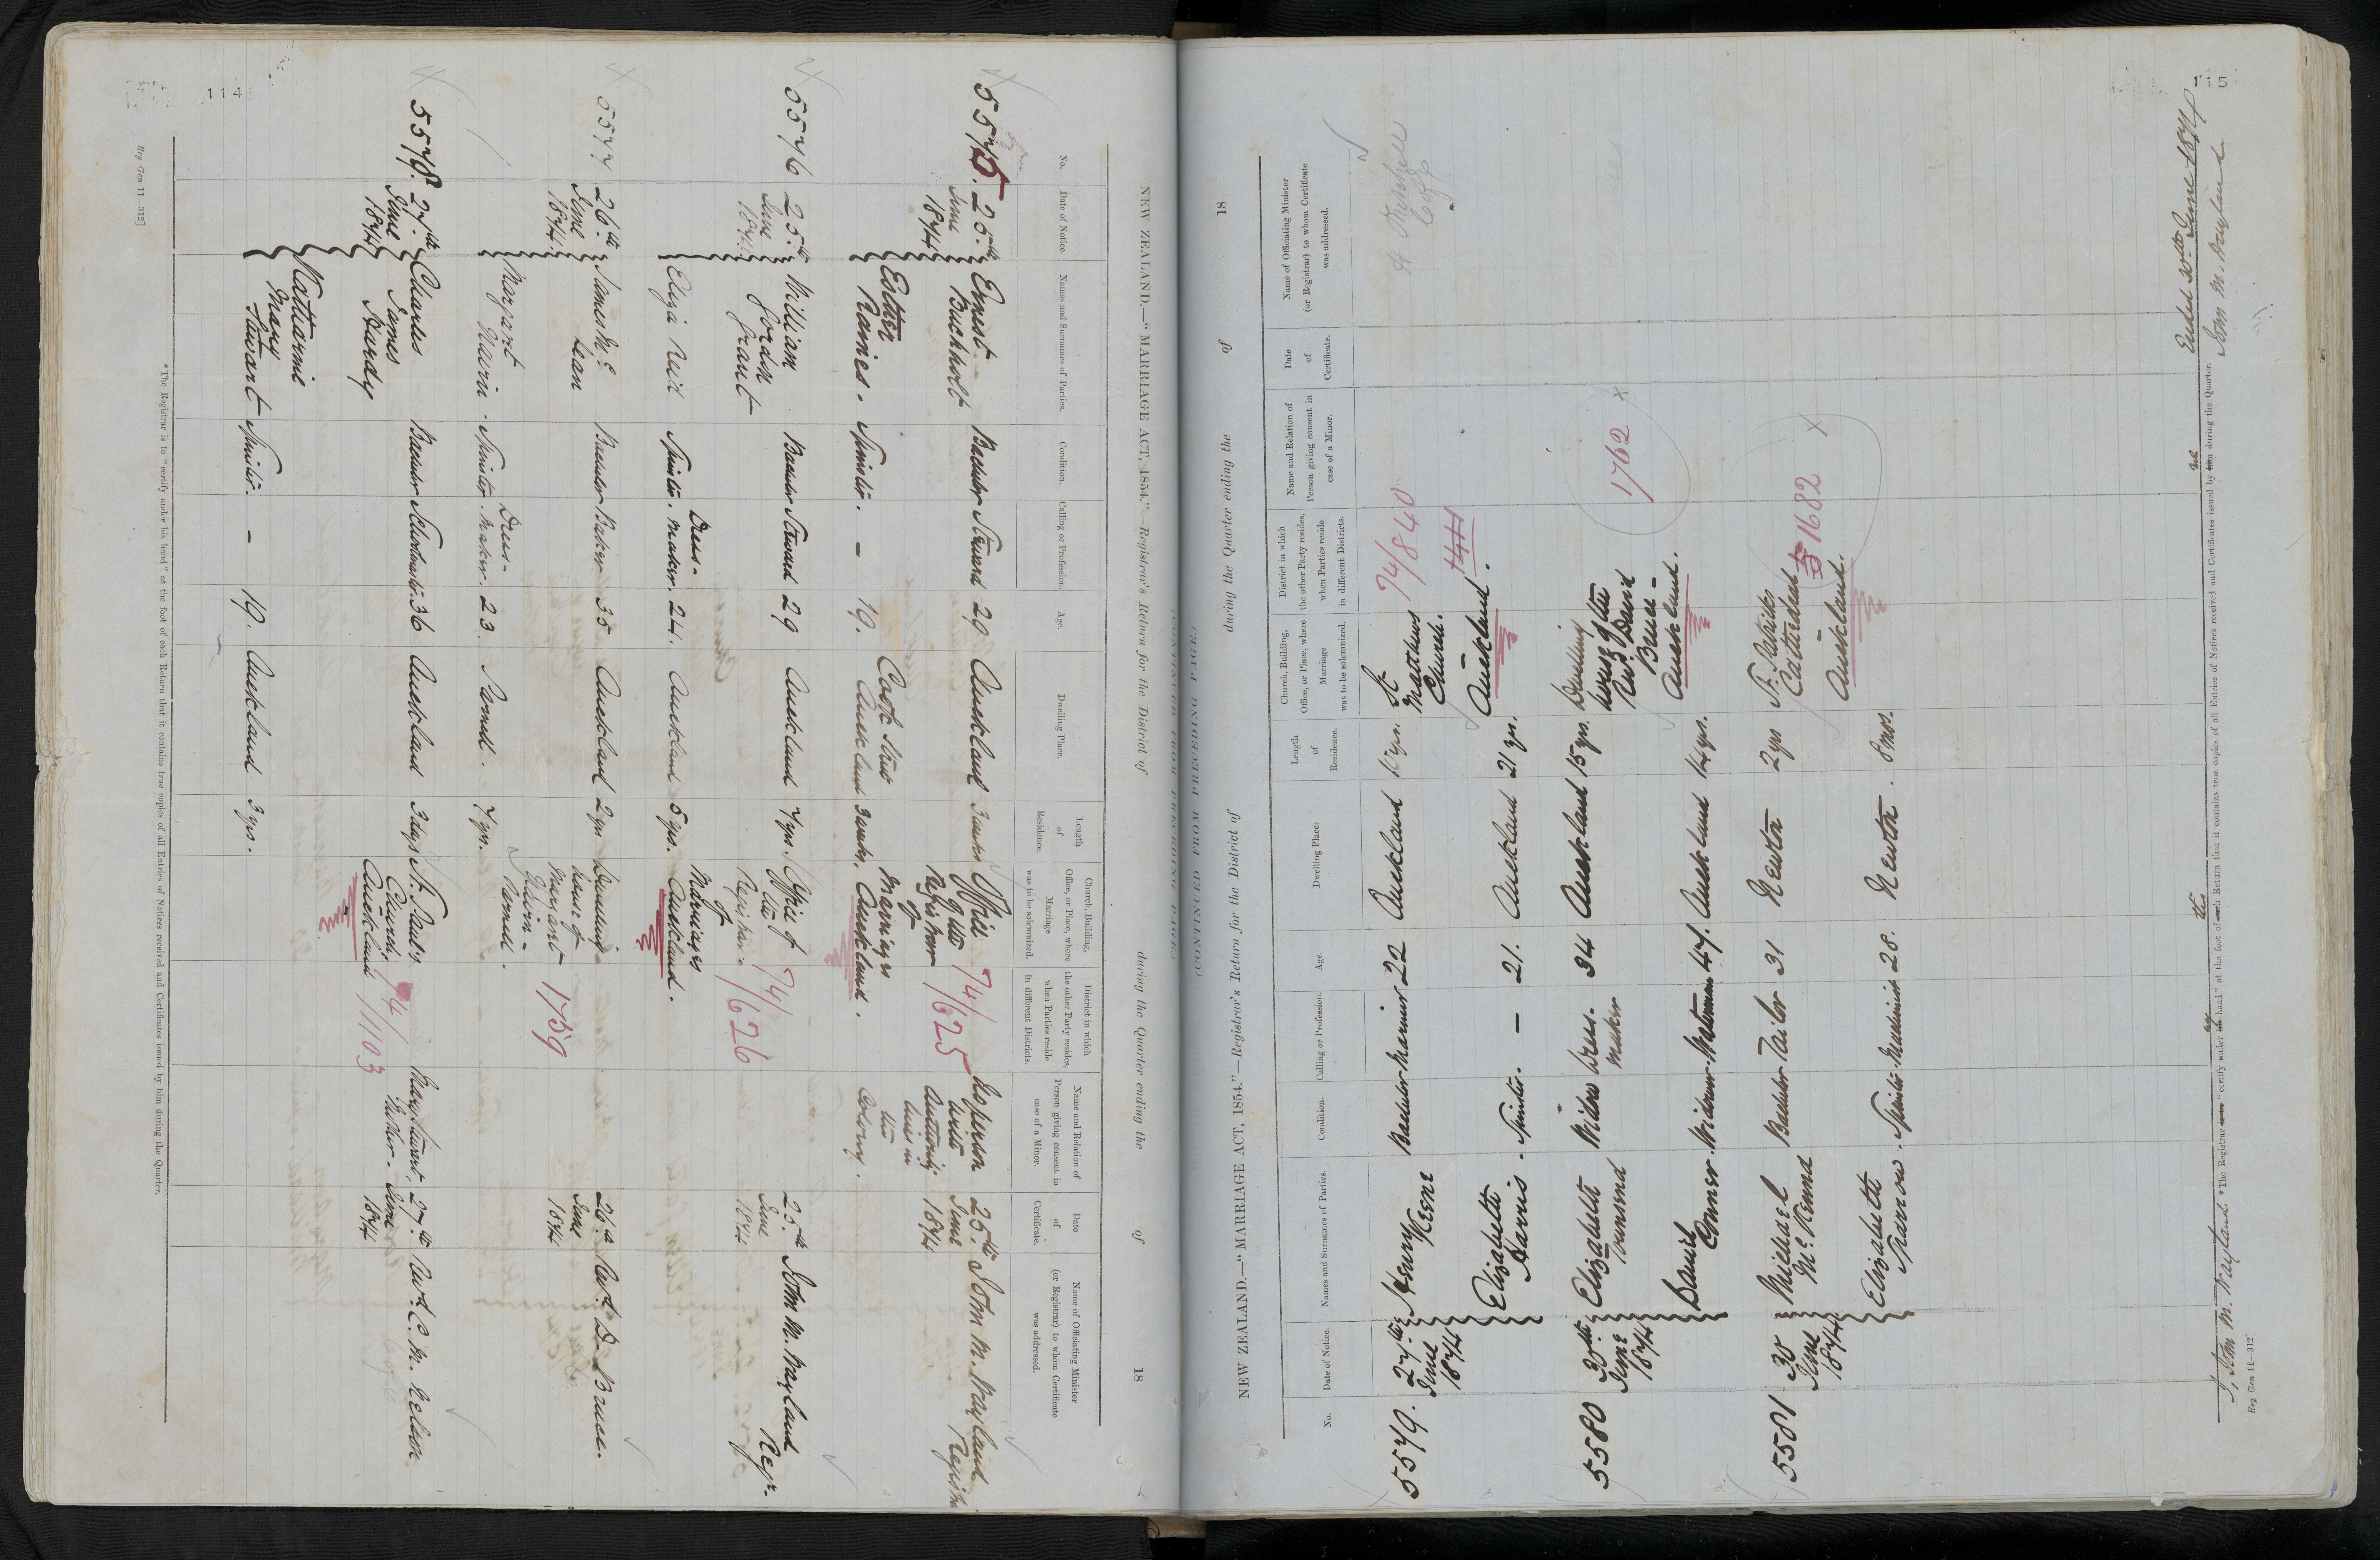 114
NEW ZEALAND.—"MARRIAGE ACT, 1854."—Registrar's Return for the District of during the Quarter ending the of 18
No. Date of Notice. Names and Surnames of Parties. Condition. Calling or Profession. Age. Dwelling Place. Length of Residence. Church, Building, Office, or Place, where Marriage was to be solemnized. District in which the other Party resides, when Parties reside in different Districts. Name and Relation of Person giving consent in case of a Minor. Date of Certificate. Name of Officiating Minister (or Registrar) to whom Certificate was addressed.
5575. 25.th June 1874 Ernest Buchholt Bachelor Steward 29 Auckland 3 weeks Office of the Registrar of Marriages Auckland. 74/625 No person with Authority lives in the Colony. 25th June 1874 John M. Wayland Registr
Esther Ranies. Spinster. – 19. Cook Street Auckland 3 weeks.
5576 25.th June 1874 William Joran Grant Bachelor Steward 29 Auckland 7 yrs. Office of the Registrar of Marriages Auckland. 74/626 25.th June 1874 John M. Wayland Regr.
Eliza Neil Spinster. Dress-maker. 24. Auckland 5 yrs.
5577 26.th June 1874. James Mc Lean Bachelor Baker 35 Auckland 2 yrs Dwelling house of Margaret Remd. 1759 26.th June 1874 Revd. D. Bruce.
Margaret Spinster. Dress-maker. 23. 7 yrs.
5578. 27.th June 1874 Charles James Hardy Bachelor Schoolmaster 36 Auckland 3 days St. Paul's Church, Auckland 74/1103 Mary Stewart, Mother. 27.th June 1874 Revd. C. M. Nelson
Katharine Mary Stewart Spinster. – 19. Auckland 3 yrs.
*The Registrar is to "certify under his hand" at the foot of each Return that it contains true copies of all Entries of Notices received and Certificates issued by him during the Quarter.
Reg Gen 11—312]
115
(CONTINUED FROM PRECEDING PAGE)
NEW ZEALAND.—"MARRIAGE ACT, 1854."—Registrar's Return for the District of during the Quarter ending the of 18
No. Date of Notice. Names and Surnames of Parties. Condition. Calling or Profession. Age. Dwelling Place. Length of Residence. Church, Building, Office, or Place, where Marriage was to be solemnized. District in which the other Party resides, when Parties reside in different Districts. Name and Relation of Person giving consent in case of a Minor. Date of Certificate. Name of Officiating Minister (or Registrar) to whom Certificate was addressed.
5579. 27.th June 1874 Henry Keane Bachelor Mariner 22 Auckland St. Matthews Church. Auckland. 74/840
Elizabeth Harris. Spinster. – 21. Auckland 21 yrs.
5580 30.th June 1874 Elizabeth Townsend Widow Dress-maker 34 Auckland 15 yrs. Dwelling house of the Revd. David Bruce – Auckland. 1762 X
Daniel Conner. Widower. Waterman 47. Auckland 14 yrs.
5581 30 June 1874 Michael McKenna Bachelor Tailor 31 Newton 2 yrs St. Patricks Cathedral Auckland. 1682 X
Elizabeth Sparrow. Spinster. Machinist 28. Newton. 8 mos.
I, John M. Wayland
*The Registrar "certify under hand" at the foot of Return that it contains true copies of all Entries of Notices received and Certificates issued by me during the Quarter.
30th June 1874
John M. Wayland
Reg Gen 11—312]